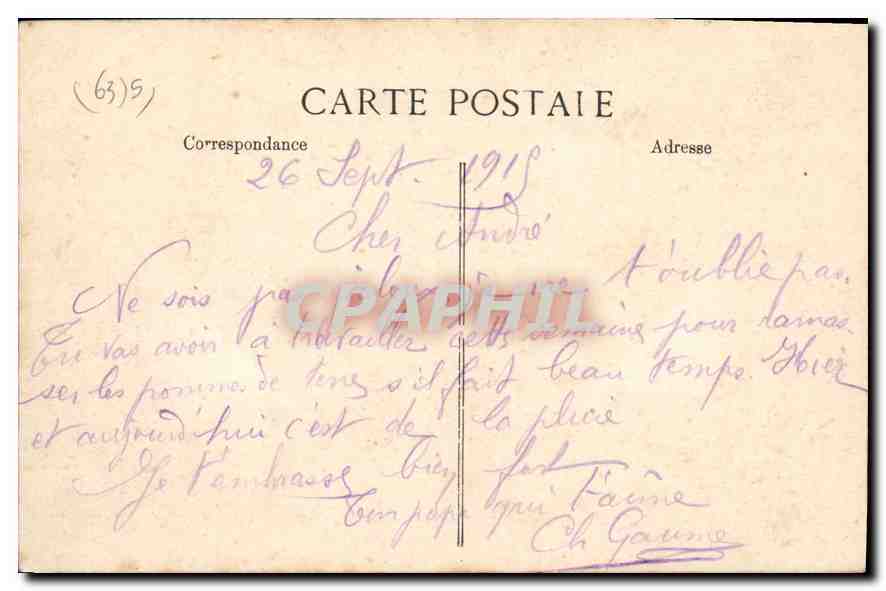 (63)5)
CARTE POSTALE
Correspondance
Adresse
26 Sept. 1915
Cher André
Ne sois pas jaloux je ne t'oublie pas.
Tu vas avoir à travailler cette semaine pour ramas-
ser les pommes de terre s'il fait beau temps. Hier
et aujourd'hui c'est de la pluie
Je t'embrasse bien fort
Ton papa qui t'aime
Ch Gaume
CPAPHIL